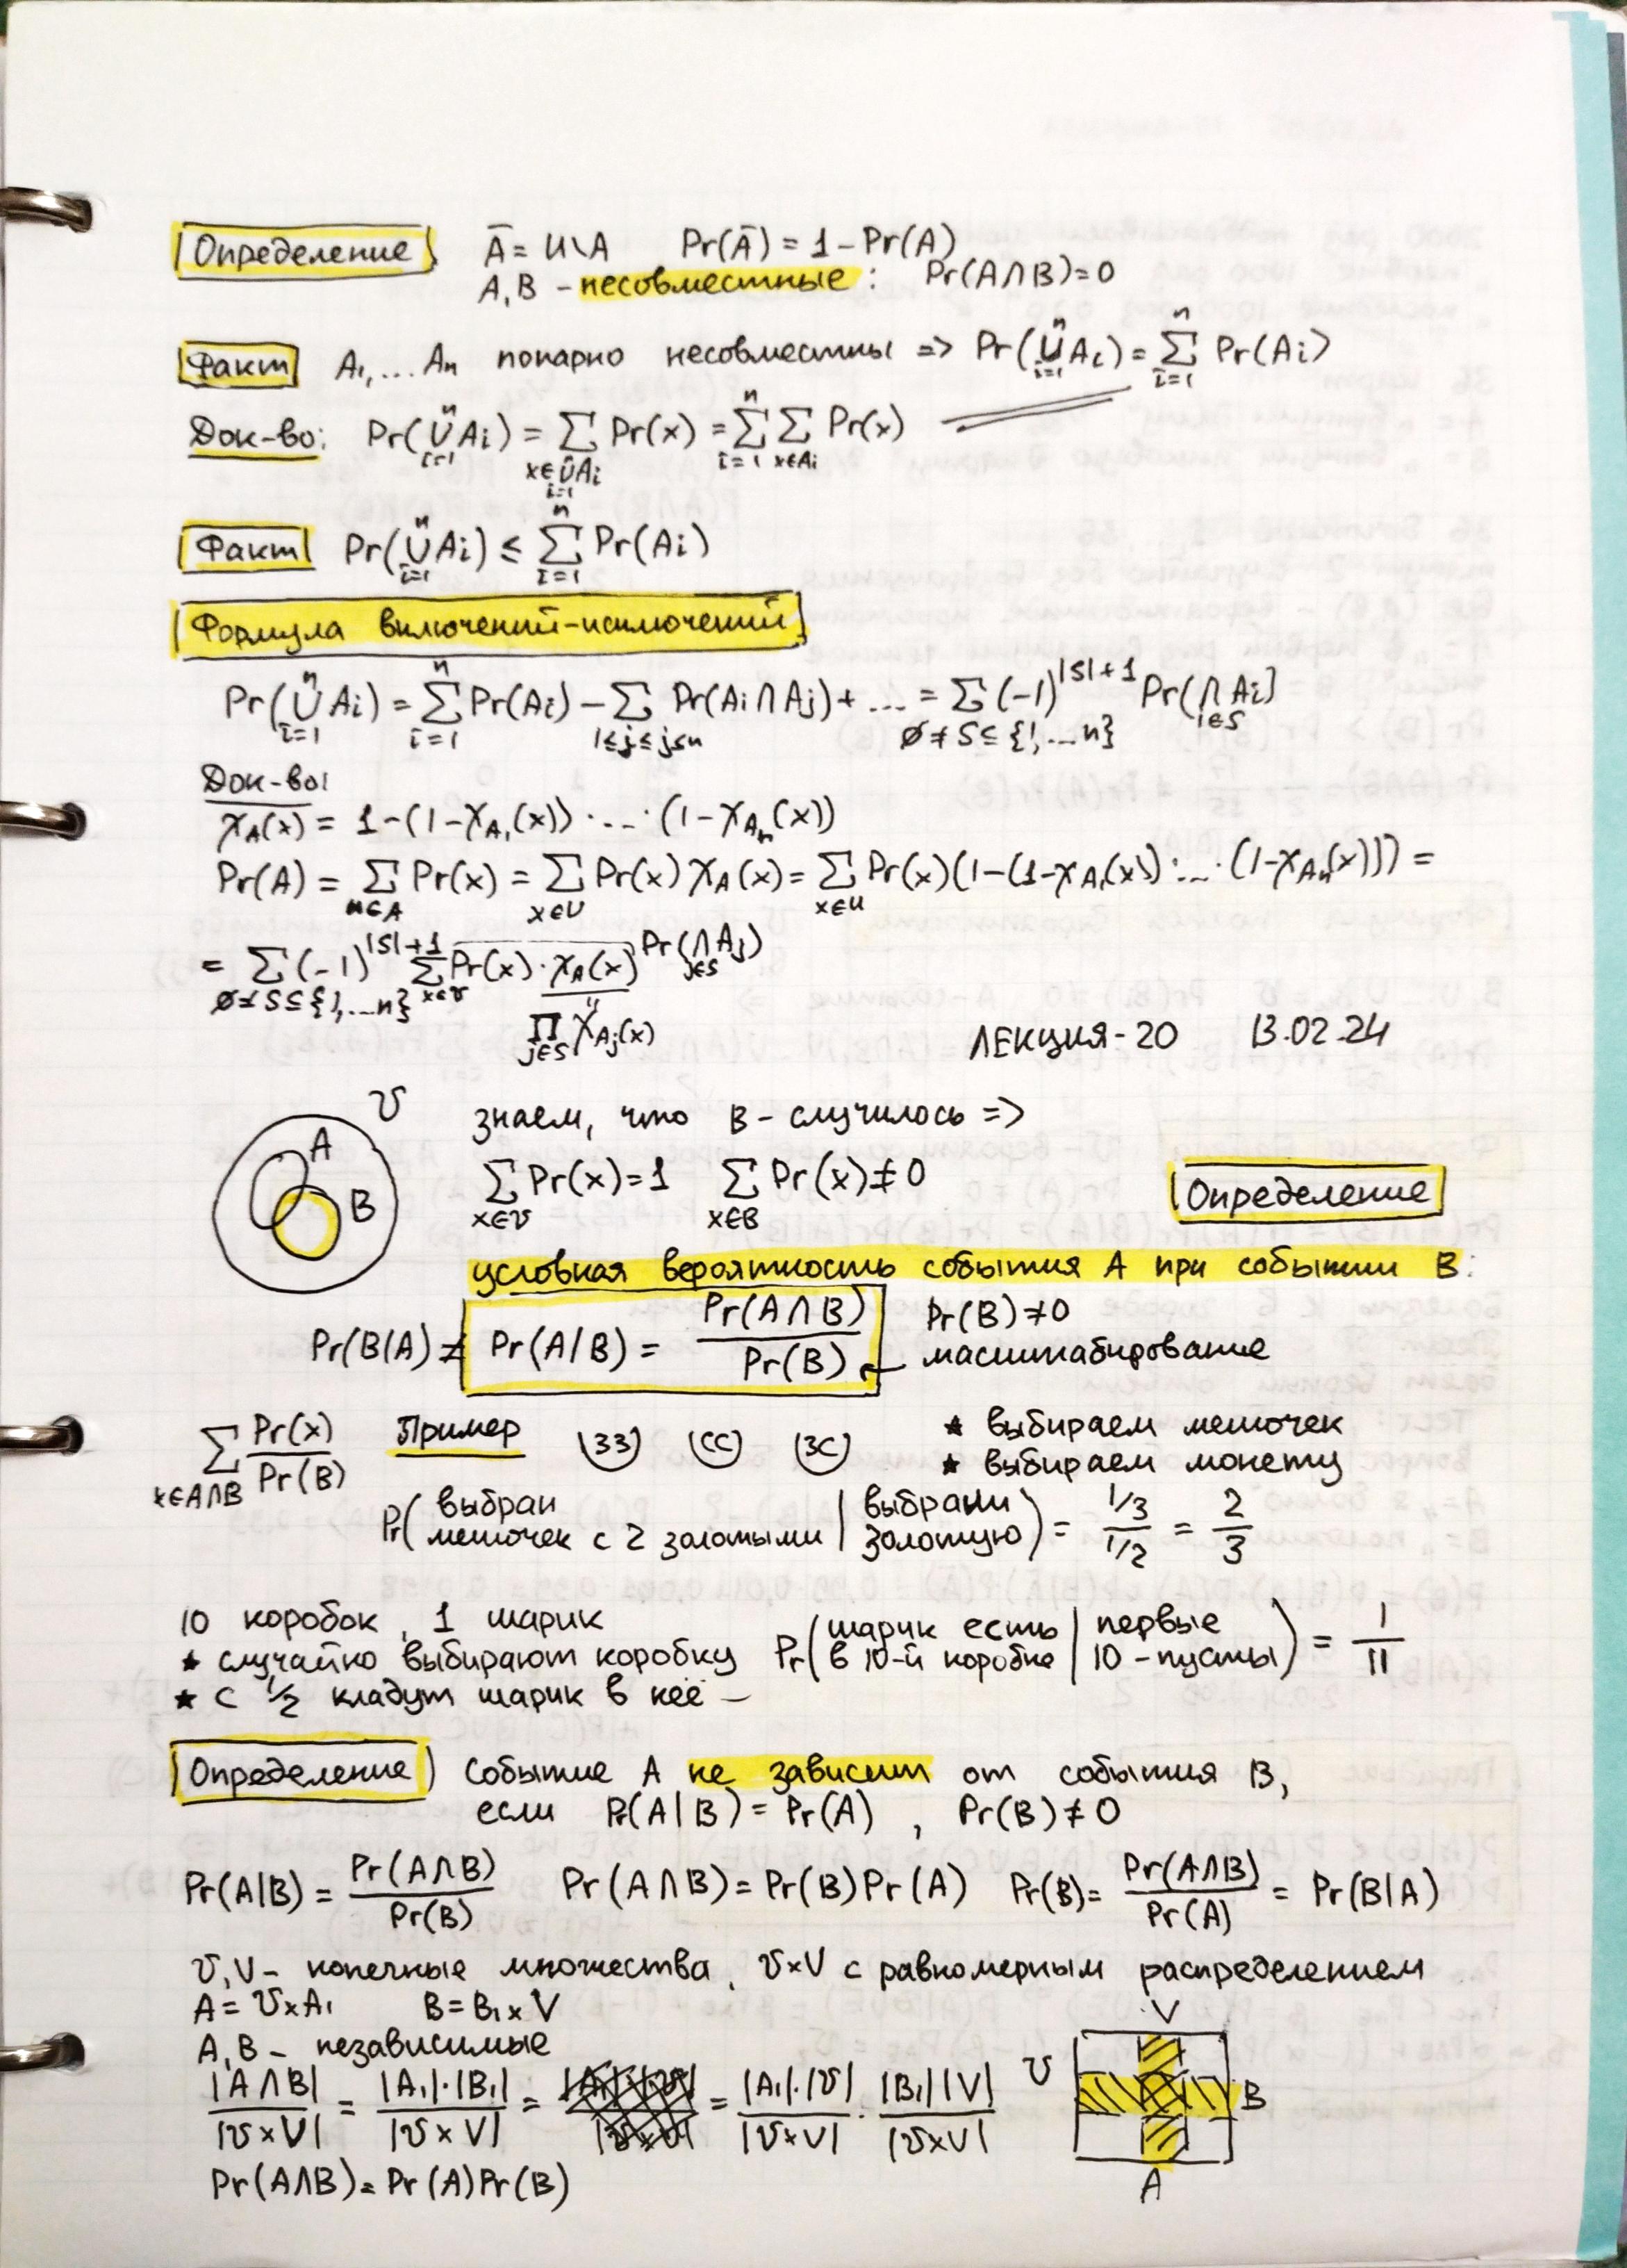 Определение Ā = U\A Pr(Ā) = 1 - Pr(A)
A, B - несовместные: Pr(A∩B)=0
Факт A₁,...Aₙ попарно несовместны => Pr(⋃ᵢ₌₁ⁿ Aᵢ) = ∑ᵢ₌₁ⁿ Pr(Aᵢ)
Док-во: Pr(⋃ᵢ₌₁ⁿ Aᵢ) = ∑_{x∈⋃ᵢ₌₁ⁿ Aᵢ} Pr(x) = ∑ᵢ₌₁ⁿ ∑_{x∈Aᵢ} Pr(x)
Факт Pr(⋃ᵢ₌₁ⁿ Aᵢ) ≤ ∑ᵢ₌₁ⁿ Pr(Aᵢ)
Формула включений-исключений
Pr(⋃ᵢ₌₁ⁿ Aᵢ) = ∑ᵢ₌₁ⁿ Pr(Aᵢ) - ∑_{1≤j≤j≤n} Pr(Aᵢ∩Aⱼ) + ... = ∑_{∅≠S⊆{1,...n}} (-1)^{|S|+1} Pr(⋂_{i∈S} Aᵢ)
Док-во:
χ_A(x) = 1-(1-χ_{A₁}(x))·...·(1-χ_{Aₙ}(x))
Pr(A) = ∑_{x∈A} Pr(x) = ∑_{x∈U} Pr(x) χ_A(x) = ∑_{x∈U} Pr(x)(1-(1-χ_{A₁}(x))·...·(1-χ_{Aₙ}(x))) =
= ∑_{∅≠S⊆{1,...n}} (-1)^{|S|+1} ∑_{x∈U} Pr(x)·χ_A(x) Pr(⋂_{j∈S} Aⱼ)
∏_{j∈S} χ_{Aⱼ}(x)
ЛЕКЦИЯ-20 13.02.24
U A B
знаем, что B - случилось =>
∑_{x∈U} Pr(x)=1 ∑_{x∈B} Pr(x)≠0
Определение
условная вероятность события A при событии B:
Pr(B|A) ≠ Pr(A|B) = Pr(A∩B)/Pr(B) Pr(B)≠0
масштабирование
∑_{x∈A∩B} Pr(x)/Pr(B) Пример (ЗЗ) (СС) (ЗС)
★ выбираем мешочек
★ выбираем монету
Pr( выбран мешочек с 2 золотыми | выбрали золотую ) = 1/3 / 1/2 = 2/3
10 коробок, 1 шарик
★ случайно выбирают коробку
★ с 1/2 кладут шарик в неё –
Pr( шарик есть в 10-й коробке | первые 10 - пусты ) = 1/11
Определение Событие A не зависит от события B,
если Pr(A|B) = Pr(A), Pr(B)≠0
Pr(A|B) = Pr(A∩B)/Pr(B) Pr(A∩B) = Pr(B)Pr(A) Pr(B) = Pr(A∩B)/Pr(A) = Pr(B|A)
U,V - конечные множества, U×V с равномерным распределением
A = U×A₁ B = B₁×V
A,B - независимые
|A∩B|/|U×V| = |A₁|·|B₁|/|U×V| = = |A₁|·|U|/|U×V| · |B₁||V|/|U×V|
Pr(A∩B) = Pr(A)Pr(B)
V
U
B
A